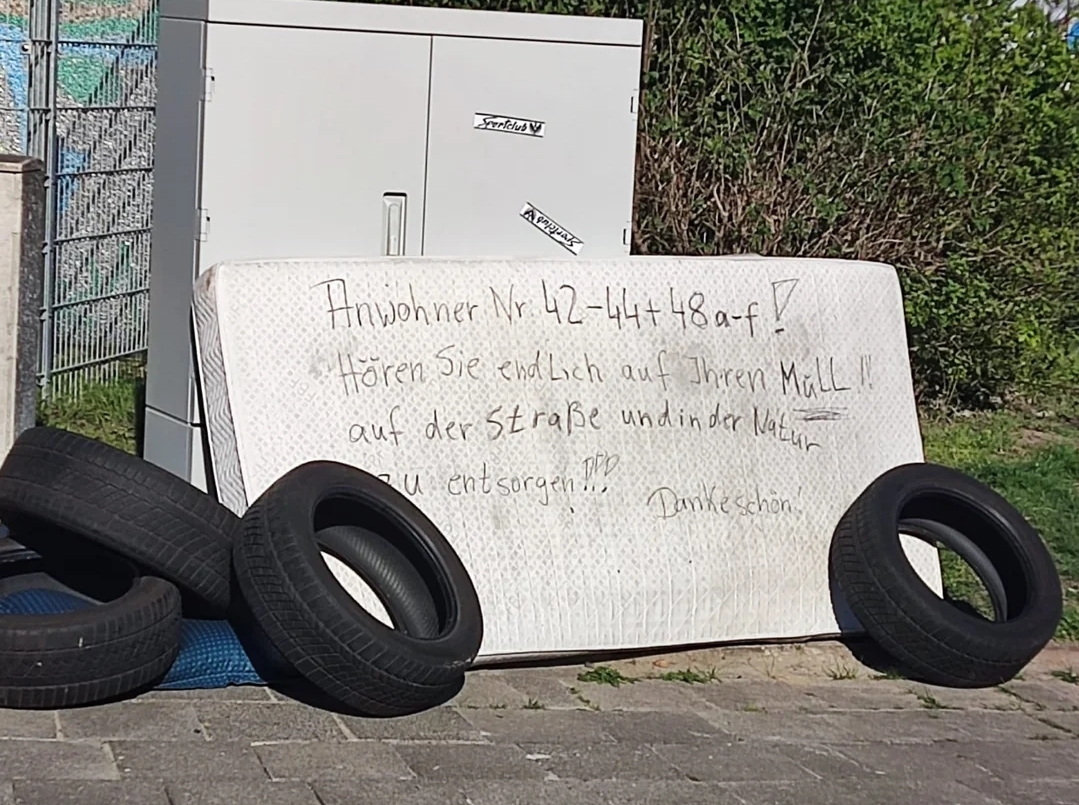 Sportclub
Sportclub
Anwohner Nr. 42-44+48a-f!
Hören Sie endlich auf Ihren Müll!!
auf der Straße und in der Natur
zu entsorgen!!!
Dankeschön!